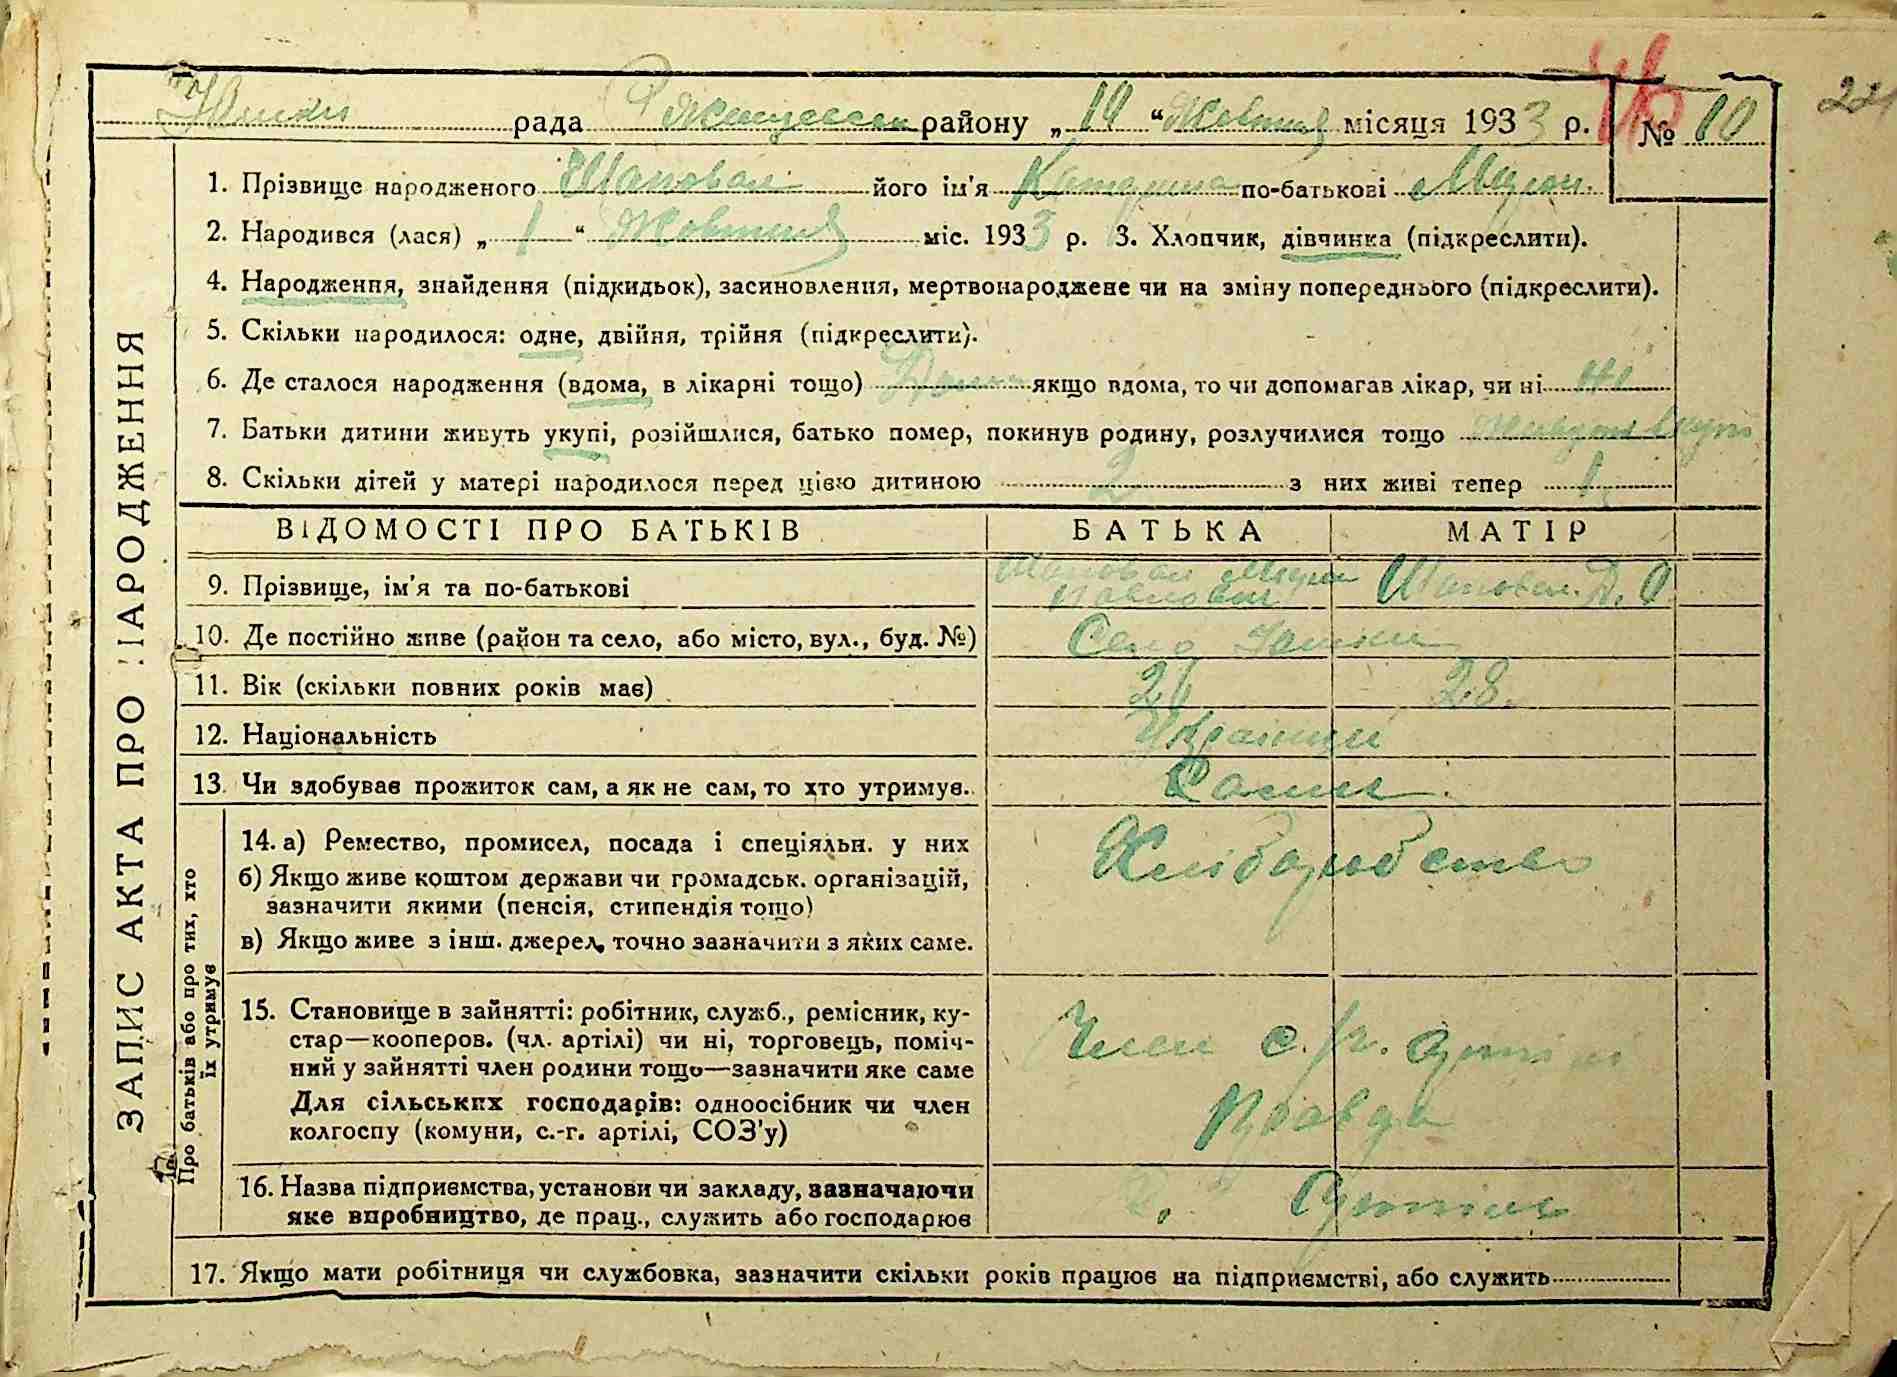 Юшки рада района „14“ Жовтня місяця 1933 р. № 10
1. Прізвище народженого Шаповал його ім'я Катерина по-батькові Мирон.
2. Народився (лася) „1“ Жовтня міс. 1933 р. 3. Хлопчик, дівчинка (підкреслити).
4. Народження, знайдення (підкидьок), засиновлення, мертвонароджене чи на зміну попереднього (підкреслити).
5. Скільки народилося: одне, двійня, трійня (підкреслити).
6. Де сталося народження (вдома, в лікарні тощо) Дома якщо вдома, то чи допомагав лікар, чи ні ні
7. Батьки дитини живуть укупі, розійшлися, батько помер, покинув родину, розлучилися тощо Живуть вкупі
8. Скільки дітей у матері народилося перед цією дитиною 2 з них живі тепер 1.
ВІДОМОСТІ ПРО БАТЬКІВ БАТЬКА МАТІР
9. Прізвище, ім'я та по-батькові Шаповал Мирон Павлович Шаповал. Д.
10. Де постійно живе (район та село, або місто, вул., буд. №) Село Юшки
11. Вік (скільки повних років має) 28.
12. Національність Українци
13. Чи здобуває прожиток сам, а як не сам, то хто утримує. Сами.
14. а) Ремество, промисел, посада і спеціяльн. у них Хліборобство
б) Якщо живе коштом держави чи громадськ. організацій,
зазначити якими (пенсія, стипендія тощо)
в) Якщо живе з інш. джерел, точно зазначити з яких саме.
15. Становище в зайнятті: робітник, служб., ремісник, ку-
стар—кооперов. (чл. артілі) чи ні, торговець, поміч-
ний у зайнятті член родини тощо—зазначити яке саме
Для сільських господарів: одноосібник чи член
колгоспу (комуни, с.-г. артілі, СОЗ'у)
Член с.г. артілі
Правда
16. Назва підприємства, установи чи закладу, зазначаючи
яке впробництво, де прац., служить або господарює
Артіль
17. Якщо мати робітниця чи службовка, зазначити скільки років працює на підприємстві, або служить
ЗАПИС АКТА ПРО НАРОДЖЕННЯ
Про батьків або про тих, хто
їх утримує